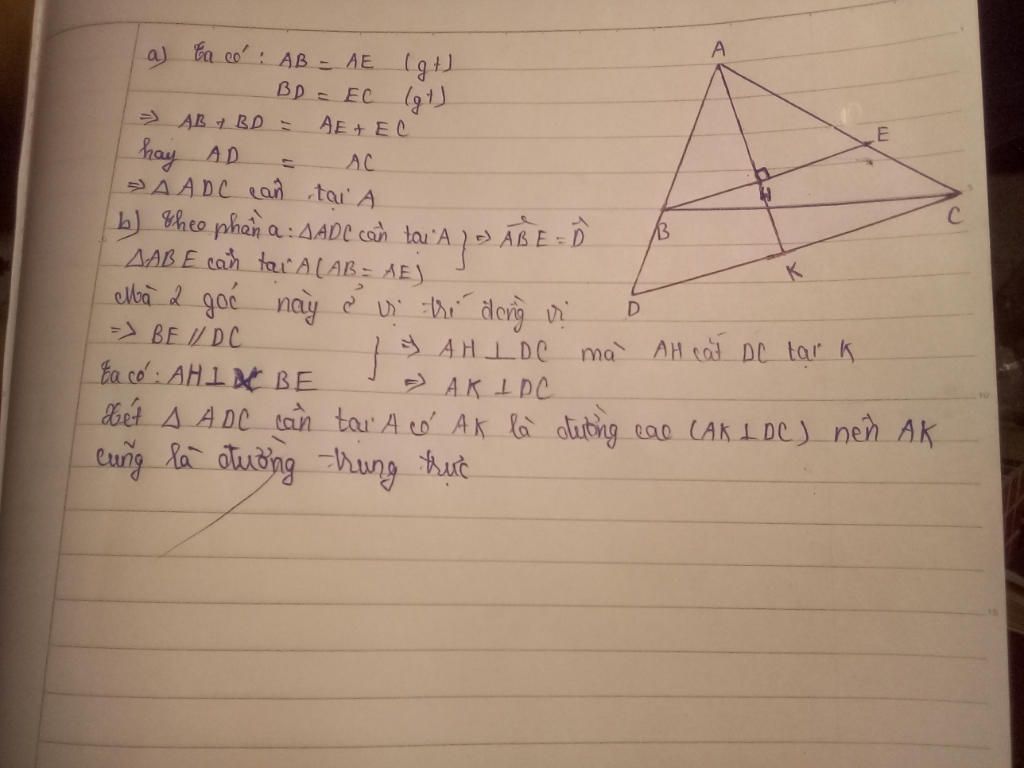 a) Ta có: AB = AE (gt)
BD = EC (gt)
=> AB + BD = AE + EC
hay AD = AC
=> Δ ADC cân tại A
b) Theo phần a: ΔADC cân tại A } => ABE = D̂
ΔABE cân tại A (AB = AE)
Mà 2 góc này ở vị trí đồng vị
=> BE // DC } => AH ⊥ DC mà AH cắt DC tại K
Ta có: AH ⊥ BE => AK ⊥ DC
Xét Δ ADC cân tại A có AK là đường cao (AK ⊥ DC) nên AK
cũng là đường trung trực
A
E
H
B
C
K
D